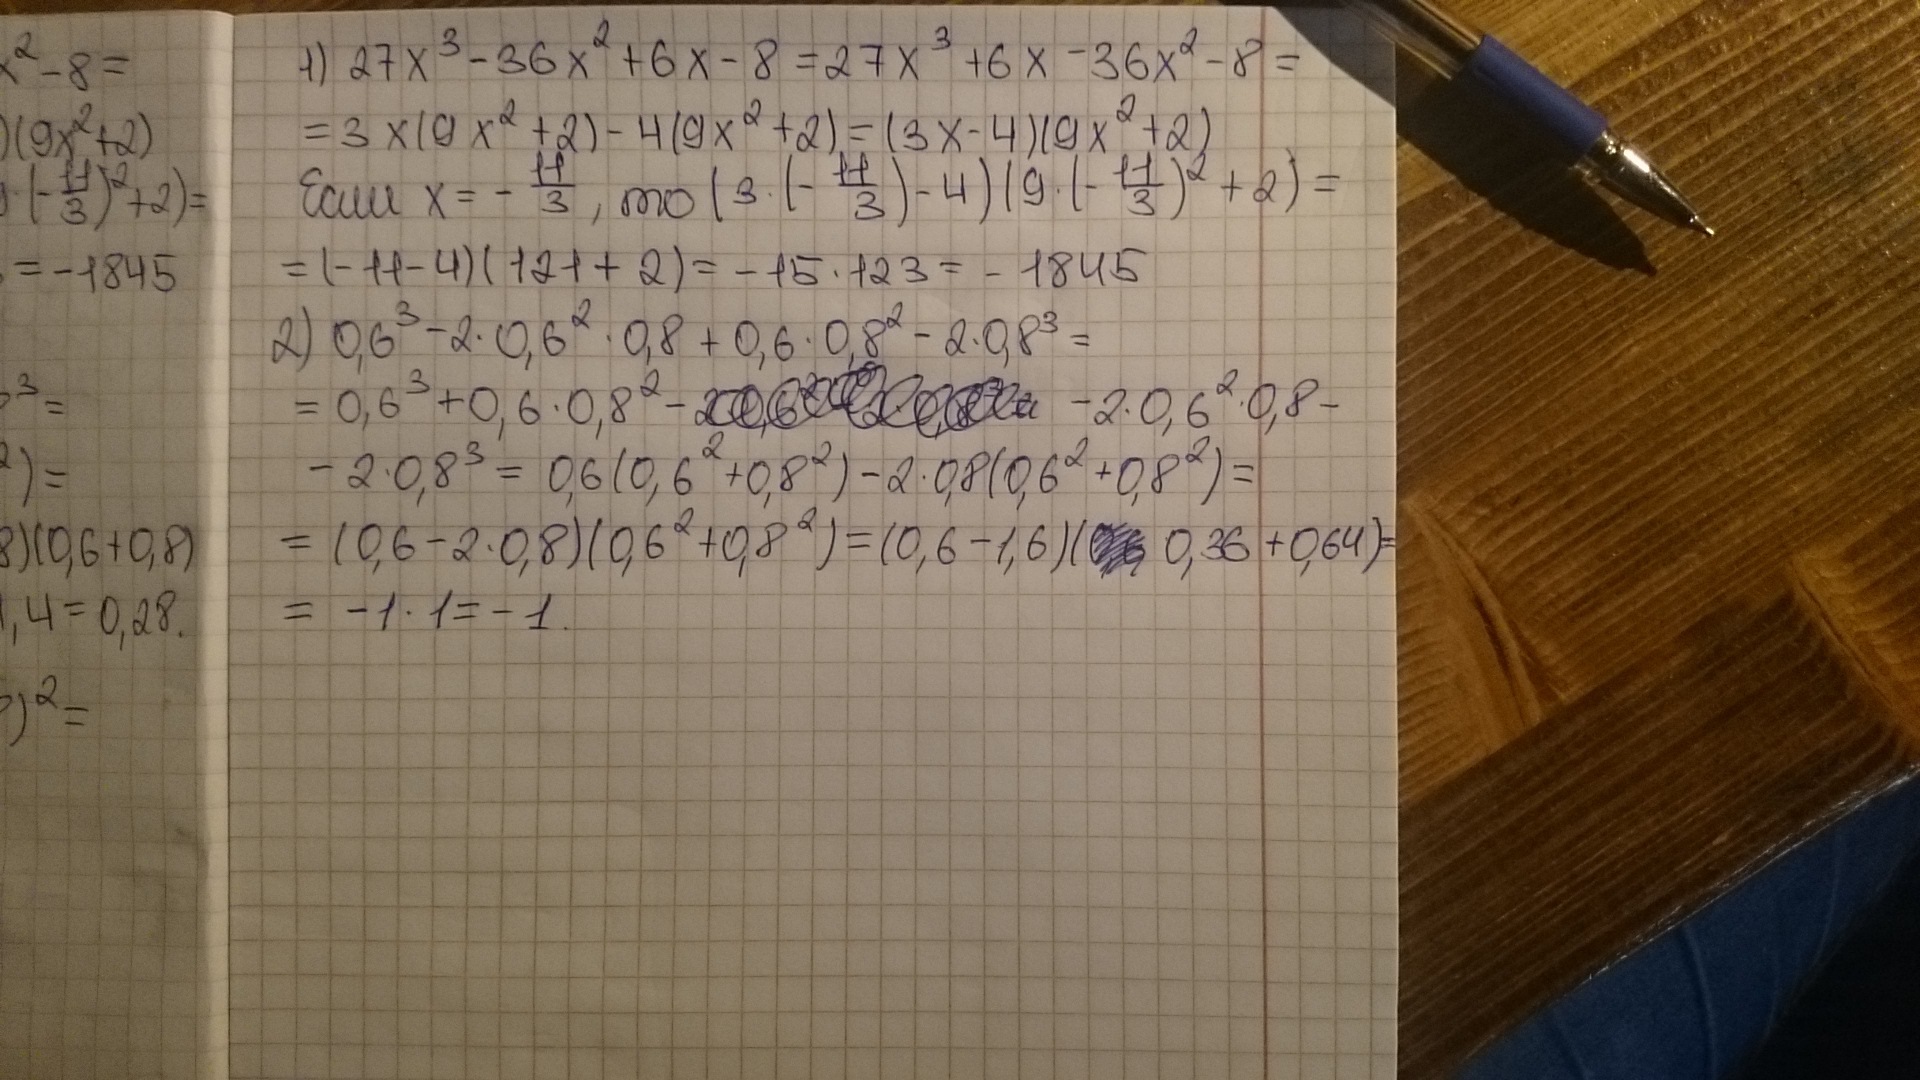 x² - 8 =
)(9x² + 2)
·(-11/3)² + 2) =
= -1845
³ =
²) =
8)(0,6 + 0,8)
1,4 = 0,28.
)² =
1) 27x³ - 36x² + 6x - 8 = 27x³ + 6x - 36x² - 8 =
= 3x(9x² + 2) - 4(9x² + 2) = (3x - 4)(9x² + 2)
Если x = -11/3, то (3·(-11/3) - 4)(9·(-11/3)² + 2) =
= (-11 - 4)(121 + 2) = -15·123 = -1845
2) 0,6³ - 2·0,6²·0,8 + 0,6·0,8² - 2·0,8³ =
= 0,6³ + 0,6·0,8² - - 2·0,6²·0,8 -
- 2·0,8³ = 0,6(0,6² + 0,8²) - 2·0,8(0,6² + 0,8²) =
= (0,6 - 2·0,8)(0,6² + 0,8²) = (0,6 - 1,6)(0,36 + 0,64) =
= -1·1 = -1.